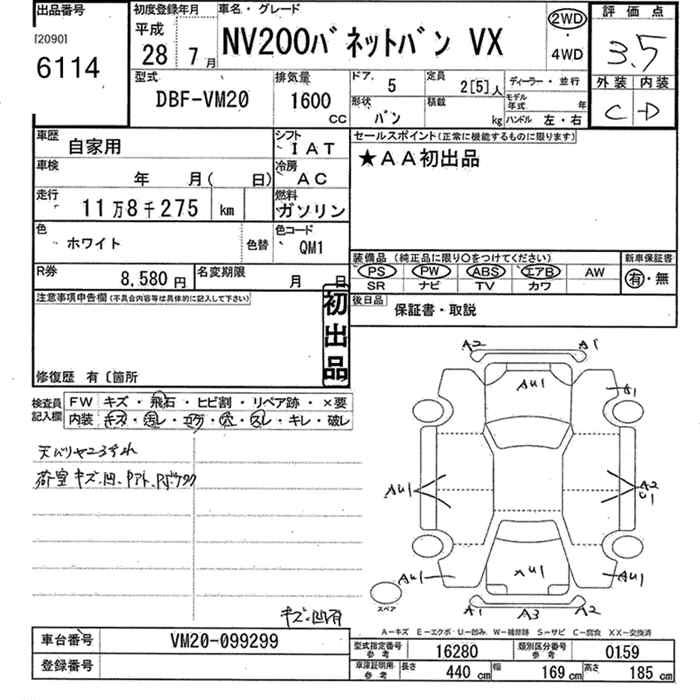 出品番号
[2090]
6114
初度登録年月
平成
28 7月
車名・グレード
NV200バネットバン VX
2WD
・
4WD
評価点
3.5
外装 内装
C D
型式
DBF-VM20
排気量
1600
CC
ドア.
5
定員
2[5]人
ディーラー・並行
形状
バン
積載
kg
モデル年式 年
ハンドル 左・右
車歴
自家用
シフト
IAT
セールスポイント(正常に機能するものに限ります)
★AA初出品
車検
年 月( 日)
冷房
AC
走行
11万8千275 km
燃料
ガソリン
色
ホワイト
色替
色コード
QM1
装備品 (純正品に限り○をつけてください)
新車保証書
PS PW ABS エアB AW
SR ナビ TV カワ
有・無
R券
8,580円
名変期限
月 日
後日品
保証書・取説
注意事項申告欄(不具合内容等は具体的に記入して下さい)
初出品
修復歴 有〔箇所
検査員記入欄
FW キズ・飛石・ヒビ割・リペア跡・×要
内装 キズ・汚レ・コゲ・穴・スレ・キレ・破レ
天バリヤニ汚れ
荷室キズ.凹.
キズ.凹有
A2 A1
AU1
A1
AU1
A2
U1
AU1
AU1
AU1
スペア
A1 A3 A2
A－キズ E－エクボ U－凹み W－補修跡 S－サビ C－腐食 XX－交換済
車台番号
VM20-099299
登録番号
型式指定番号参考
16280
類別区分番号参考
0159
車庫証明用参考
長さ 440 cm
幅 169 cm
高さ 185 cm